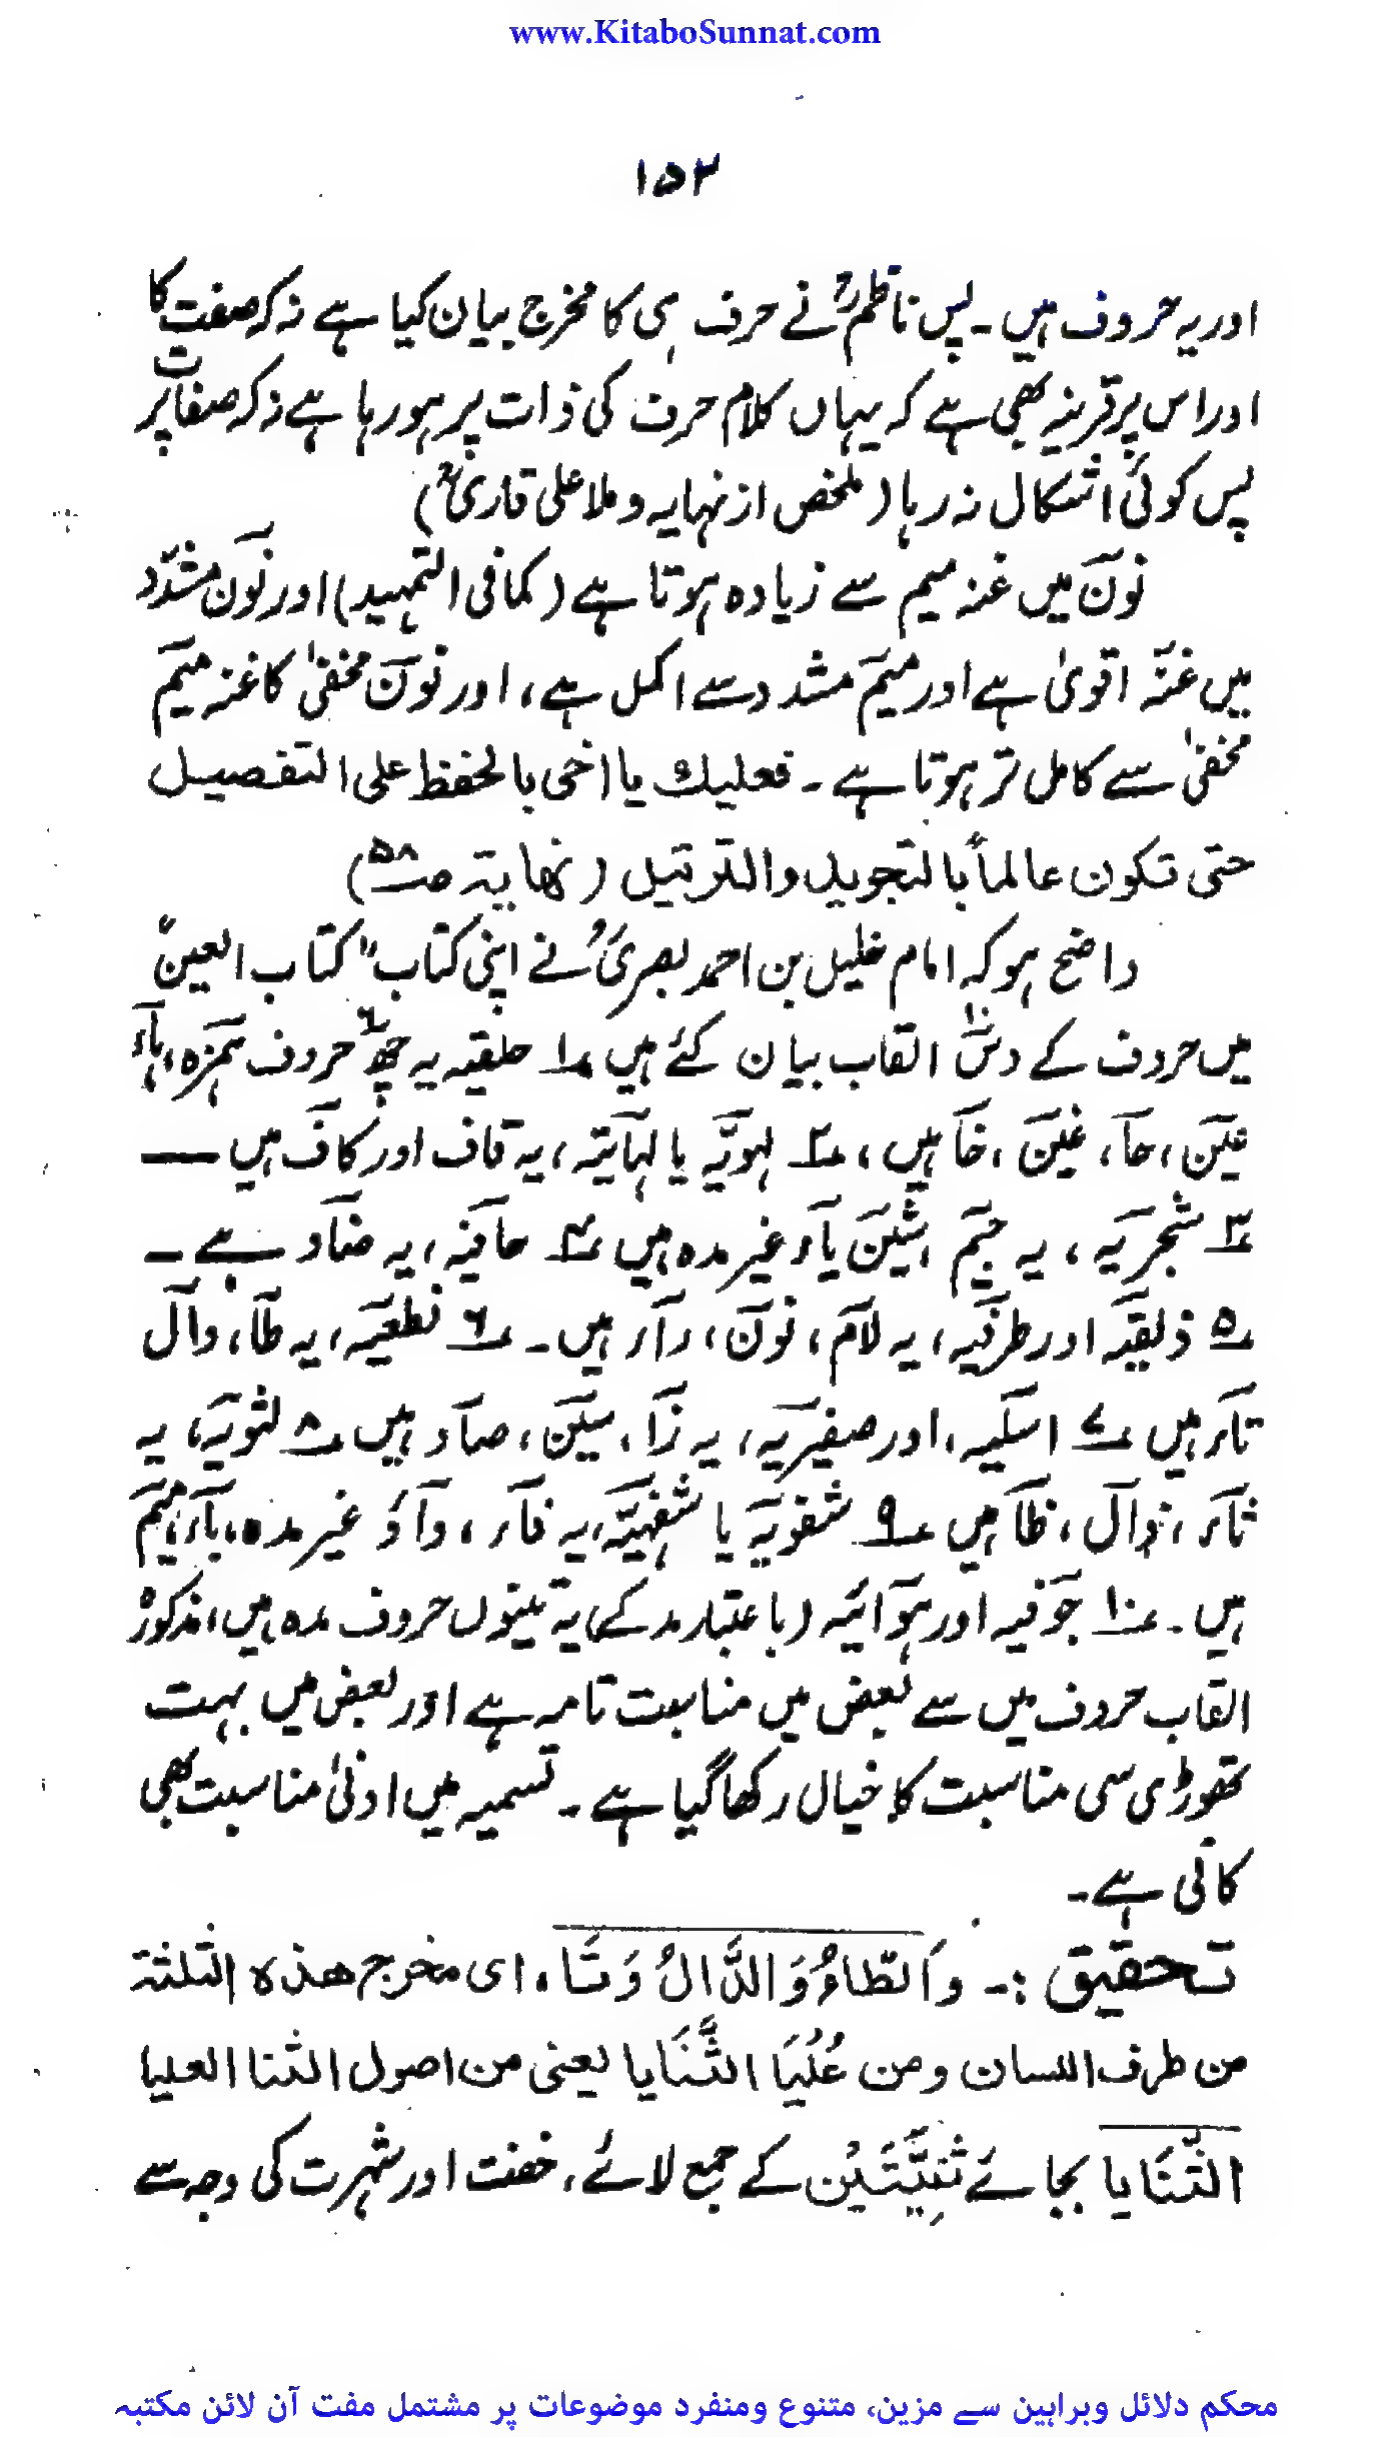 www.KitaboSunnat.com
۱۵۲
اور یہ حروف ہیں۔ پس ناظمؒ نے حرف ہی کا مخرج بیان کیا ہے نہ کہ صفت کا
اور اس پر قرینہ بھی ہے کہ یہاں کلام حرف کی ذات پر ہو رہا ہے نہ کہ صفات پر
پس کوئی اشکال نہ رہا (ملخص از نہایہ و ملا علی قاریؒ)
نون میں غنہ میم سے زیادہ ہوتا ہے (کما فی التمہید) اور نون مشدّد
میں غنّہ اقویٰ ہے اور میم مشدد سے اکمل ہے، اور نون مخفیٰ کا غنہ میم
مخفیٰ سے کامل تر ہوتا ہے۔ فعلیك یا اخی بالحفظ علی التفصیل
حتی تکون عالماً بالتجوید والترتیل (نھایۃ صـ۵۸)
واضح ہو کہ امام خلیل بن احمد بصریؒ نے اپنی کتاب "کتاب العین"
میں حروف کے دس۱۰ القاب بیان کئے ہیں ۱؎ حلقیہ یہ چھ۶ حروف ہمزہ، ہاء،
عین، حا، غین، خا ہیں، ۲؎ لہویّہ یا لہاتیہ، یہ قاف اور کاف ہیں —
۳؎ شجریہ، یہ جیم، شین یاء غیر مدہ ہیں ۴؎ حافیہ، یہ ضاد ہے۔
۵؎ ذلقیہ اور طرفیہ، یہ لام، نون، راء ہیں۔ ۶؎ نطعیہ، یہ طا، دال
تاء ہیں ۷؎ اسلیہ، اور صفیریہ، یہ زا، سین، صاد ہیں ۸؎ لثویہ، یہ
ثاء، ذال، ظا ہیں ۹؎ شفویہ یا شفہیّہ، یہ فاء، واؤ غیر مدہ، باء، میم
ہیں۔ ۱۰؎ جوفیہ اور ہوائیہ (باعتبار مد کے) یہ تینوں حروف مدہ ہیں، مذکورہ
القاب حروف میں سے بعض میں مناسبت تامہ ہے اور بعض میں بہت
تھوڑی سی مناسبت کا خیال رکھا گیا ہے۔ تسمیہ میں ادنیٰ مناسبت بھی
کافی ہے۔
تحقیق :۔ وَالطّاءُ وَالدَّالُ وَتَا، ای مخرج ھذہ الثلثۃ
من طرف اللسان ومن عُلْیَا الثَّنَایا یعنی من اصول الثنا العلیا
الثَّنَایا بجائے ثَنِیَّتَیْن کے جمع لائے، خفت اور شہرت کی وجہ سے
محکم دلائل وبراہین سے مزین، متنوع ومنفرد موضوعات پر مشتمل مفت آن لائن مکتبہ